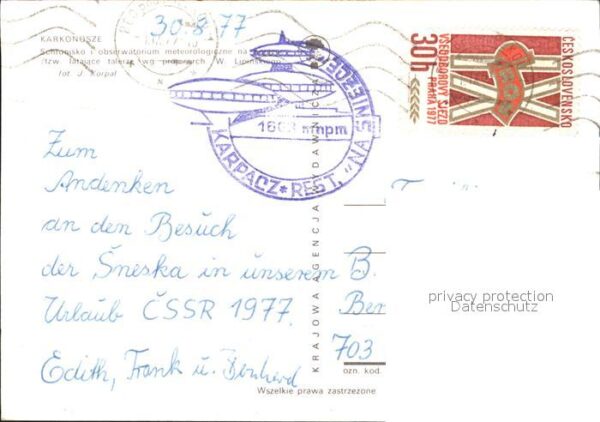 30.8.77
KARKONOSZE
Schronisko i obserwatorium meteorologiczne na
(tzw. latające talerze wg projektu W. Lipińskiego
fot. J. Korpal
KARPACZ * REST. "NA ŚNIEŻCE"
1602 m npm
30h
VŠEODBOROVÝ SJEZD
PRAHA 1977
ČESKOSLOVENSKO
Zum
Andenken
an den Besuch
der Šneska in unserem
Urlaub ČSSR 1977.
Edith, Frank u. Bernherd
KRAJOWA AGENCJA WYDAWNICZA
B.
Ber
703
ozn. kod.
Wszelkie prawa zastrzeżone
privacy protection
Datenschutz